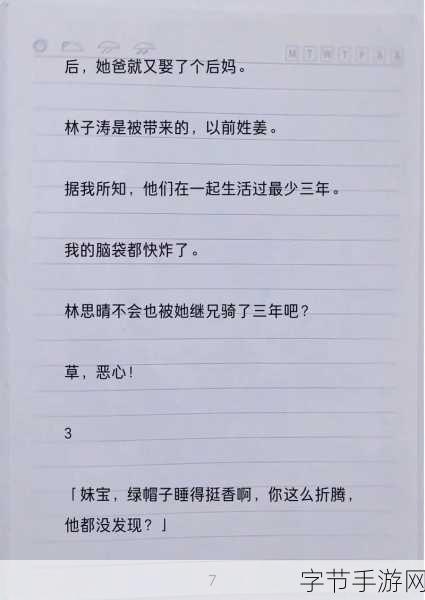 M T W T F S S
后，她爸就又娶了个后妈。
林子涛是被带来的，以前姓姜。
据我所知，他们在一起生活过最少三年。
我的脑袋都快炸了。
林思晴不会也被她继兄骑了三年吧？
草，恶心！
3
「妹宝，绿帽子睡得挺香啊，你这么折腾，
他都没发现？」
7
字节手游网